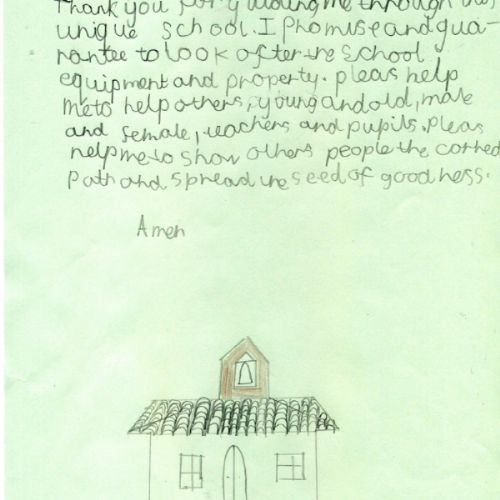 Thank you for guiding me through this
unique school. I Promise and gua-
rantee to look after the school
equipment and property. pleas help
me to help others, young and old, male
and female, teachers and pupils. Pleas
help me to show others people the correct
Path and spread the seed of goodness.
Amen